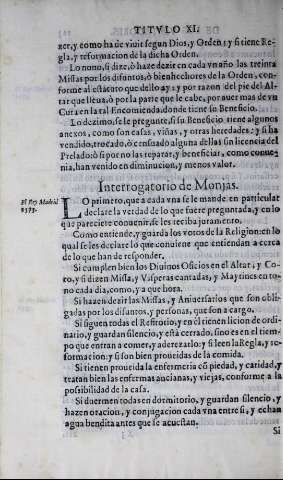 TITVLO XI.
zer, y como ha de viuir segun Dios, y Orden: y si tiene Re-
gla, y reformacion de la dicha Orden.
Lo nono, si dize, ò haze dezir en cada vn año las treinta
Missas por los difuntos, ò bienhechores de la Orden, con-
forme al estatuto que dello ay: y por razon del pie del Al-
tar que lleua, ò por la parte que le cabe, por auer mas de vn
Cura en la tal Encomienda donde tiene su Beneficio.
Lo dezimo, se le pregunte, si su Beneficio tiene algunos
anexos, como son casas, viñas, y otras heredades: y si ha
vendido, trocado, ò censuado alguna dellas sin licencia del
Prelado: ò si por no las reparar, y beneficiar, como conue-
nia, han venido en diminucion, y menos valor.
Interrogatorio de Monjas.
El Rey Madrid
1573.
LO primero, que a cada vna se le mande en particular
declare la verdad de lo que fuere preguntada, y en lo
que pareciere conuenir, se les reciba juramento.
Como entiende, y guarda los votos de la Religion: en lo
qual se les declare lo que conuiene que entiendan a cerca
de lo que han de responder.
Si cumplen bien los Diuinos Oficios en el Altar, y Co-
ro, y si dizen Missa, y Visperas cantadas, y Maytines en to-
no cada dia, como, y a que hora.
Si hazen dezir las Missas, y Aniuersarios que son obli-
gadas por los difuntos, y personas, que son a cargo.
Si siguen todas el Refitorio, y en èl tienen licion de ordi-
nario, y guardan silencio, y està cerrado, sino es en el tiem-
po que entran a comer, y aderezarlo: y si leen la Regla, y re-
formacion: y si son bien proueidas de la comida.
Si tienen proueida la enfermeria cõ piedad, y caridad, y
tratan bien las enfermas ancianas, y viejas, conforme a la
possibilidad de la casa.
Si duermen todas en dormitorio, y guardan silencio, y
hazen oracion, y conjugacion cada vna entre si, y echan
agua bendita antes que se acuestan.
Si